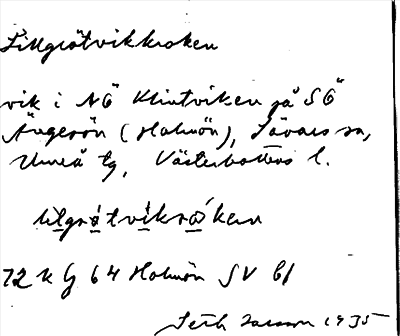 Lillgrötvikkroken
vik i NÖ Klintviken på SÖ
Ängesön (Holmön), Sävars sn,
Umeå tg, Västerbottens l.
lilgrötvikroken
72 k G 64 Holmön SV bl
Seth Larsson 1935